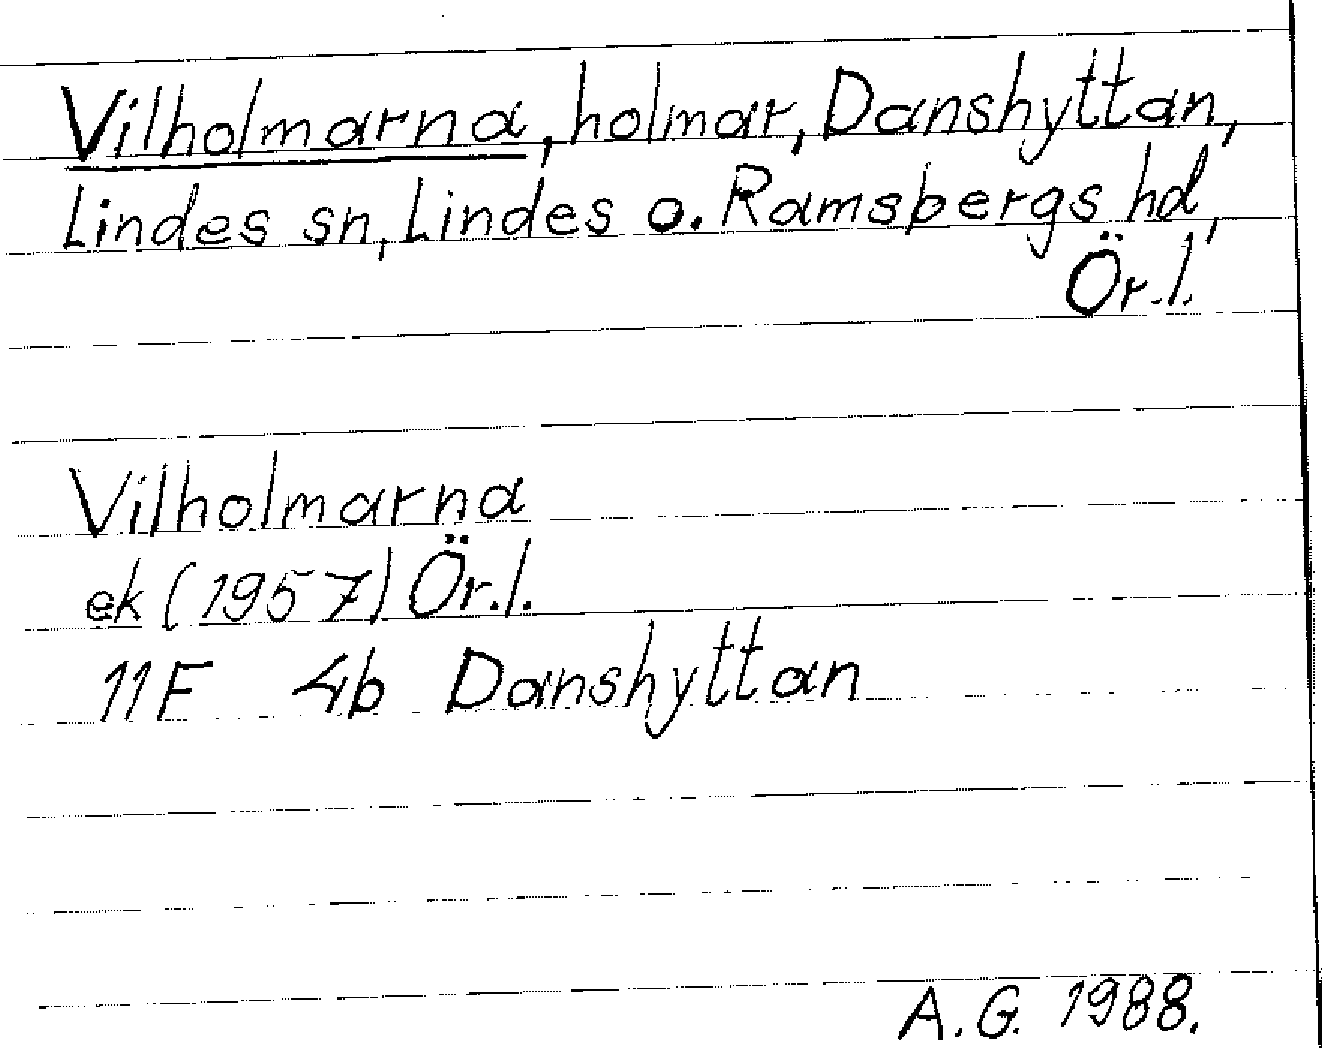 Vilholmarna, holmar, Danshyttan,
Lindes sn, Lindes o. Ramsbergs hd,
Ör.l.
Vilholmarna
ek (1957) Ör.l.
11F 4b Danshyttan
A.G. 1988.